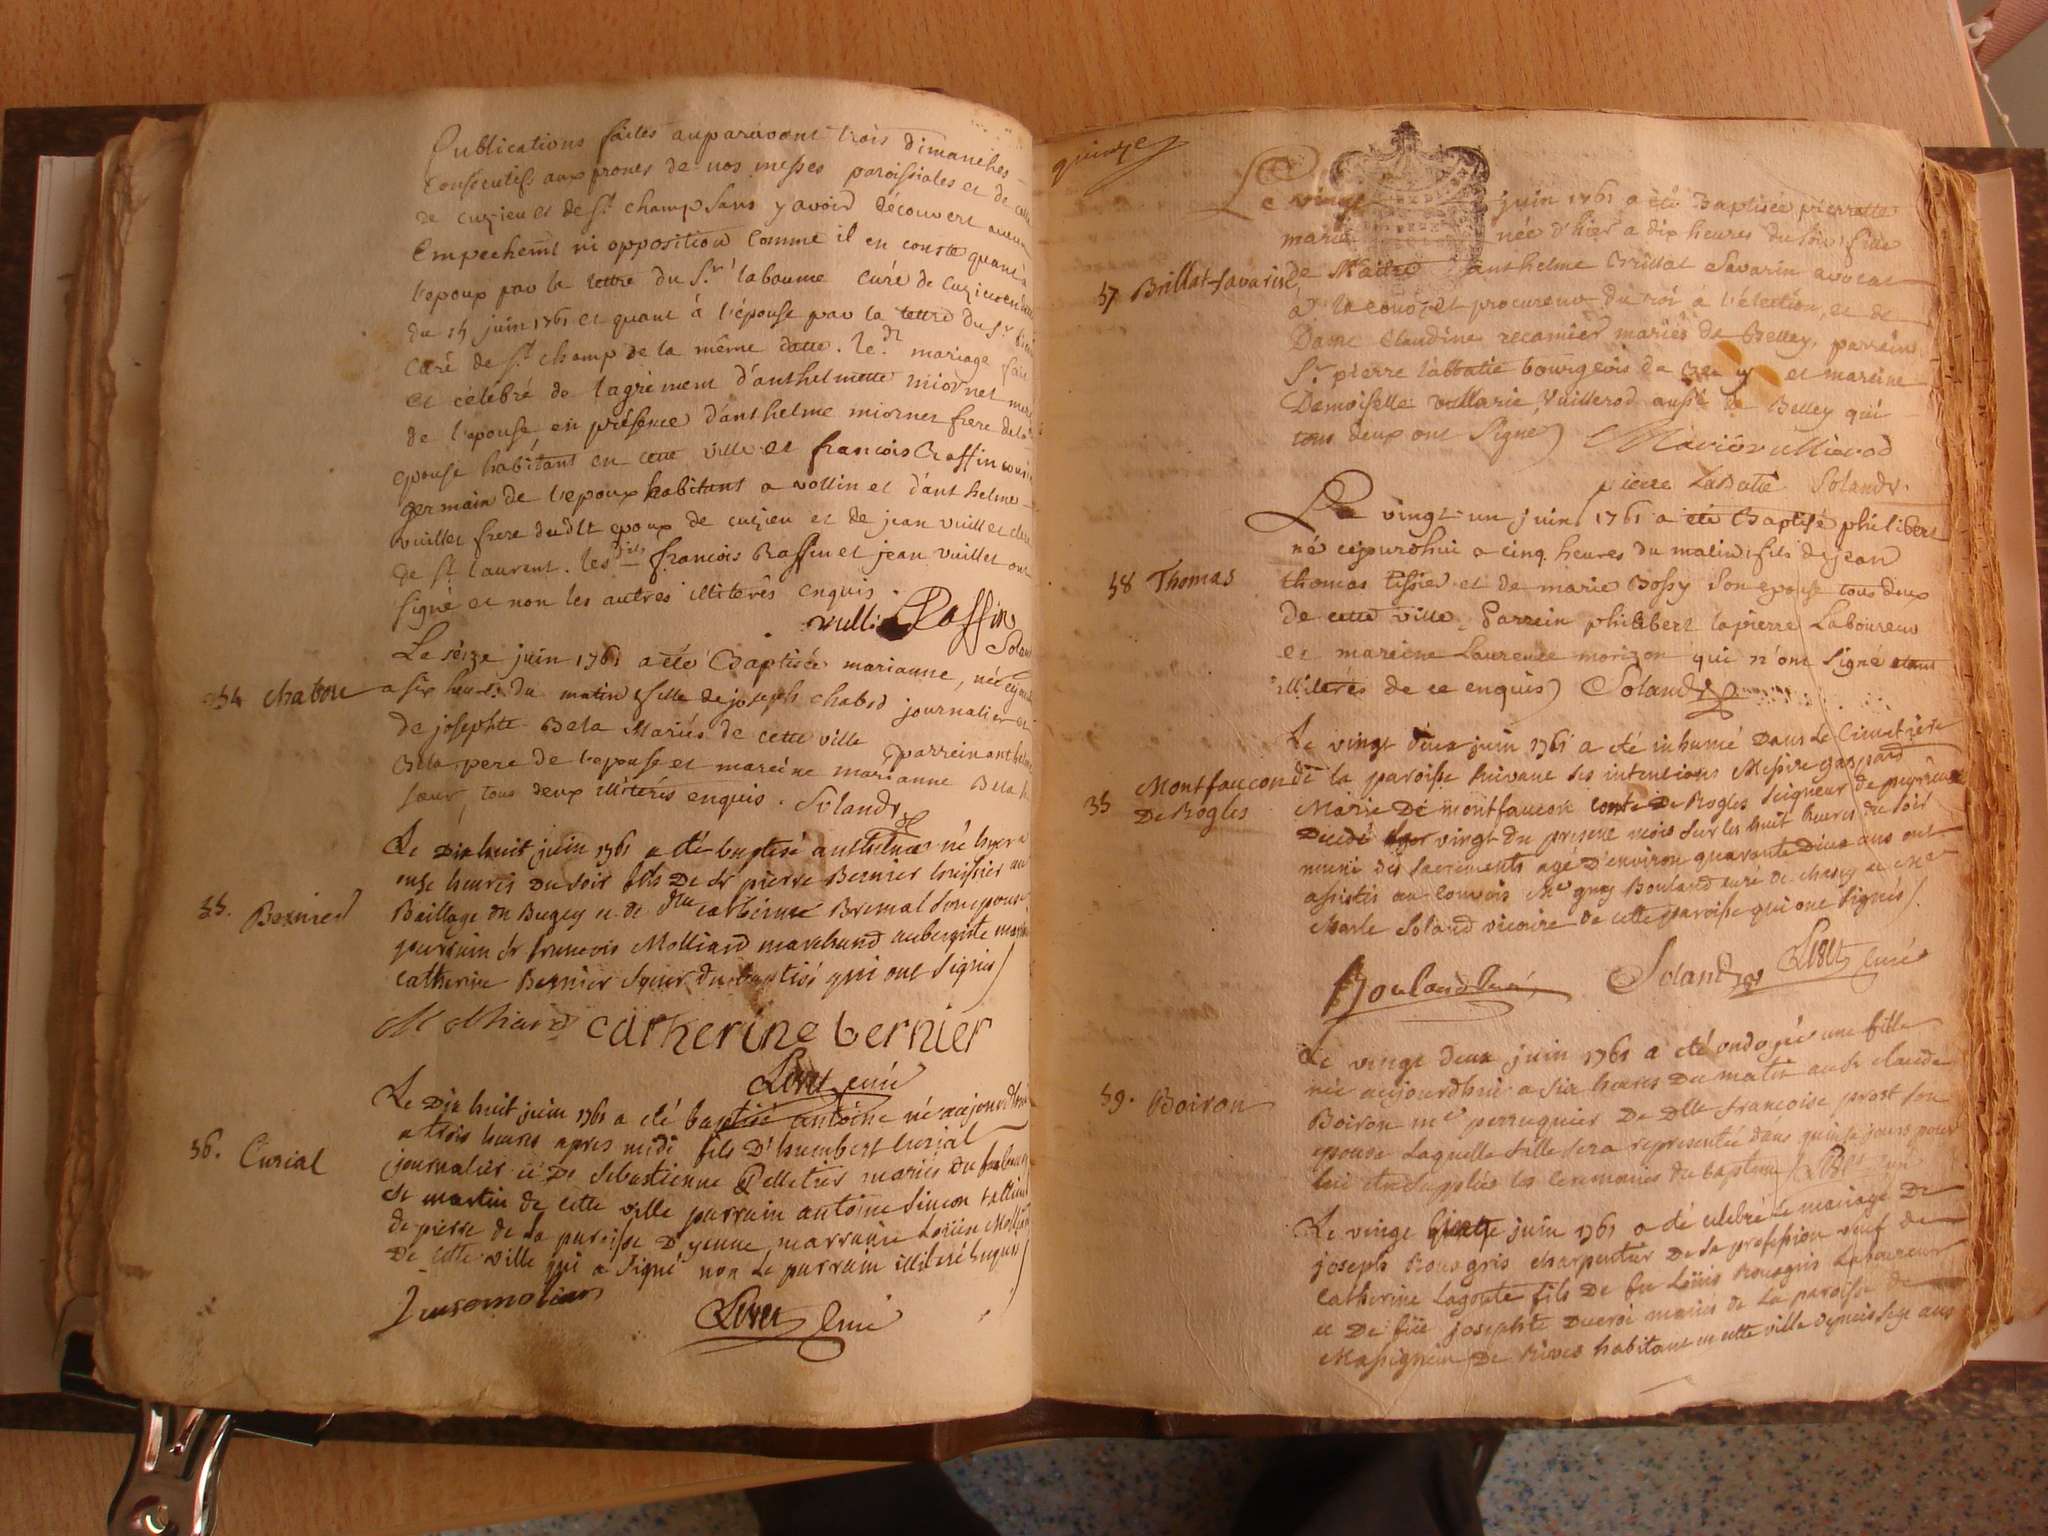 Publications faites auparavant trois dimanches
consécutifs aux prones de nos messes paroissiales et de celle
de cuzieu et de St champ sans y avoir découvert aucun
Empechemt ni opposition comme il en conste quant à
l'epoux par la lettre du Sr labaume curé de cuzieu en datte
du 14 juin 1761 et quant à l'épouse par la lettre du Sr
curé de St champ de la même datte. le dt mariage fait
et célébré de l'agrément d'anthelmette miornet mere
de l'epouse en présence d'anthelme miornet frere de la
epouse habitant en cette ville et francois Raffin cousin
germain de l'epoux habitant a vollin et d'anthelme
vuillet frere dudit epoux de cuzieu et de jean vuillet clerc
de St laurent. les dits francois Raffin et jean vuillet ont
signé et non les autres illiterés enquis.
vulliet Raffin
Soland
Le seize juin 1761 a été Baptisée marianne, née
54 chabou a six heures du matin fille de joseph chabod journalier et
de josephte Bela Mariés de cette ville parrein anthelme
Bela pere de l'epouse et mareine marianne Bela
sœur, tous deux illiterés enquis. Soland
Le Dix huit juin 1761 a été baptisé anthelme né hyer a
onze heures du soir fils De Sr pierre Bernier huissier au
55. Bernier Baillage du Bugey et de dlle catherine Bremal son epouse
parrain Sr francois Molliard marchand aubergiste marraine
catherine Bernier sœur du baptisé qui ont signés
Molliard catherine bernier
Livet curé
Le Dix huit juin 1761 a été baptisé antoine né aujourdhui
a trois heures apres midi fils D'humbert curial
56. Curial journalier et De Sebastienne Pelletier mariés du faubourg
St martin de cette ville parrain antoine simeon tallieur
de pierre de la paroisse D'yenne, marraine
De cette ville qui a signé non le parrain illiteré enquis
Livet curé
quinze
Le vingt juin 1761 a été Baptisée pierrette
marie née d'hier a dix heures du soir fille
57 Brillat-Savarin de Maitre anthelme Brillat Savarin avocat
a la cour et procureur du roi à l'élection, et de
Dame Claudine recamier mariés de Belley, parrein
Sr pierre labbatie bourgeois de et mareine
Demoiselle Marie Vuillerod aussi de Belley qui
tous deux ont signé Marie vullierod
pierre LaBatie Soland
Le vingt-un juin 1761 a été Baptisé philibert
né cejourdhui a cinq heures du matin fils de jean
58 Thomas thomas tissier et de marie Bossy son epouse tous deux
de cette ville. Parrein philibert lapierre Laboureur
et mareine Laurence morizon qui n'ont signé etant
illiterés de ce enquis Soland
Le vingt deux juin 1761 a été inhumé Dans Le Cimetiere
Montfaucon de la paroisse suivant ses intentions Messire gaspard
35 De Rogles Marie De montfaucon comte De Rogles seigneur de
Decedé vingt du present mois sur les huit heures du soir
muni des sacrements agé d'environ quarante Deux ans ont
assistés au convois Mre guy Bouland curé de chasey et Mre
charle Soland vicaire de cette paroisse qui ont signés
Bouland curé Soland Livet curé
Le vingt deux juin 1761 a été ondoyée une fille
née aujourdhui a six heures Du matin au Sr claude
59. Boiron Boiron me perruquier De Dlle francoise prost son
epouse Laquelle fille sera representée dans quinze jours pour
lui etre supplées les ceremonies du bapteme Livet curé
Le vingt juin 1761 a été celebré Le mariage De
joseph Rousgris charpentier De sa profession veuf de
catherine Lagoute fils De feu Loüis Rousgris Laboureur
et De füe josephte mariés de La paroisse de
Massignieu De Rives habitant en cette ville depuis seze ans